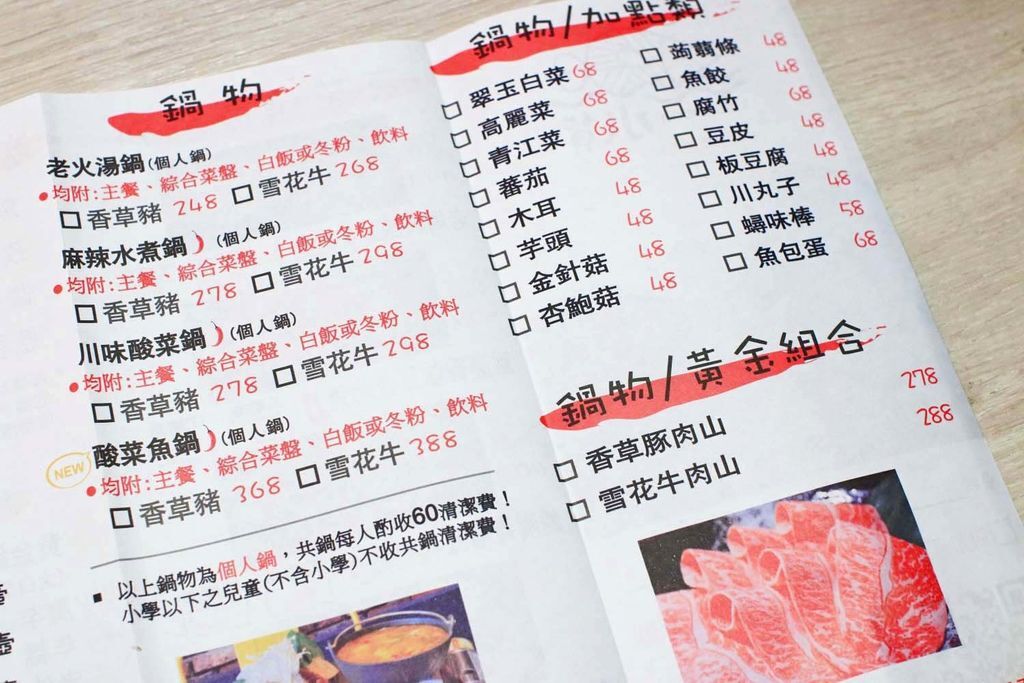 鍋物
老火湯鍋(個人鍋)
●均附:主餐、綜合菜盤、白飯或冬粉、飲料
□香草豬 248 □雪花牛 268
麻辣水煮鍋 (個人鍋)
●均附:主餐、綜合菜盤、白飯或冬粉、飲料
□香草豬 278 □雪花牛 298
川味酸菜鍋 (個人鍋)
●均附:主餐、綜合菜盤、白飯或冬粉、飲料
□香草豬 278 □雪花牛 298
NEW 酸菜魚鍋 (個人鍋)
●均附:主餐、綜合菜盤、白飯或冬粉、飲料
□香草豬 368 □雪花牛 388
▪ 以上鍋物為個人鍋，共鍋每人酌收60清潔費！
小學以下之兒童(不含小學)不收共鍋清潔費！
壺
鍋物/加點類
□翠玉白菜 68
□高麗菜 68
□青江菜 68
□蕃茄 68
□木耳 48
□芋頭 48
□金針菇 48
□杏鮑菇 48
□蒟蒻條 48
□魚餃 48
□腐竹 68
□豆皮 48
□板豆腐 48
□川丸子 48
□蟳味棒 58
□魚包蛋 68
鍋物/黃金組合
□香草豚肉山 278
□雪花牛肉山 288